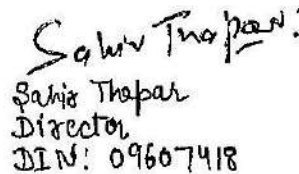 Sahir Thapar
Sahir Thapar
Director
DIN: 09607418